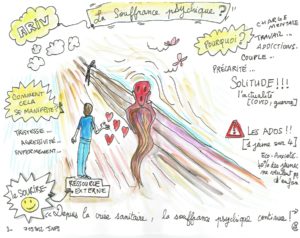 ARIV
La Souffrance psychique ?
Pourquoi ?
CHARGE
MENTALE
TRAVAIL...
ADDICTIONS..
COUPLE...
PRÉCARITÉ...
SOLITUDE!!!
l'actualité
(COVID, guerre)
COMMENT
CELA
SE MANIFESTE?
TRISTESSE
AGRESSIVITÉ
ENFERMEMENT...
LES ADOS !!
(1 jeune sur 4)
Eco-Anxiété
des jeunes
ne veulent pas
d'enfant
LE SOURIRE
RESSOURCE
EXTERNE
"Depuis la crise sanitaire, la souffrance psychique continue!"